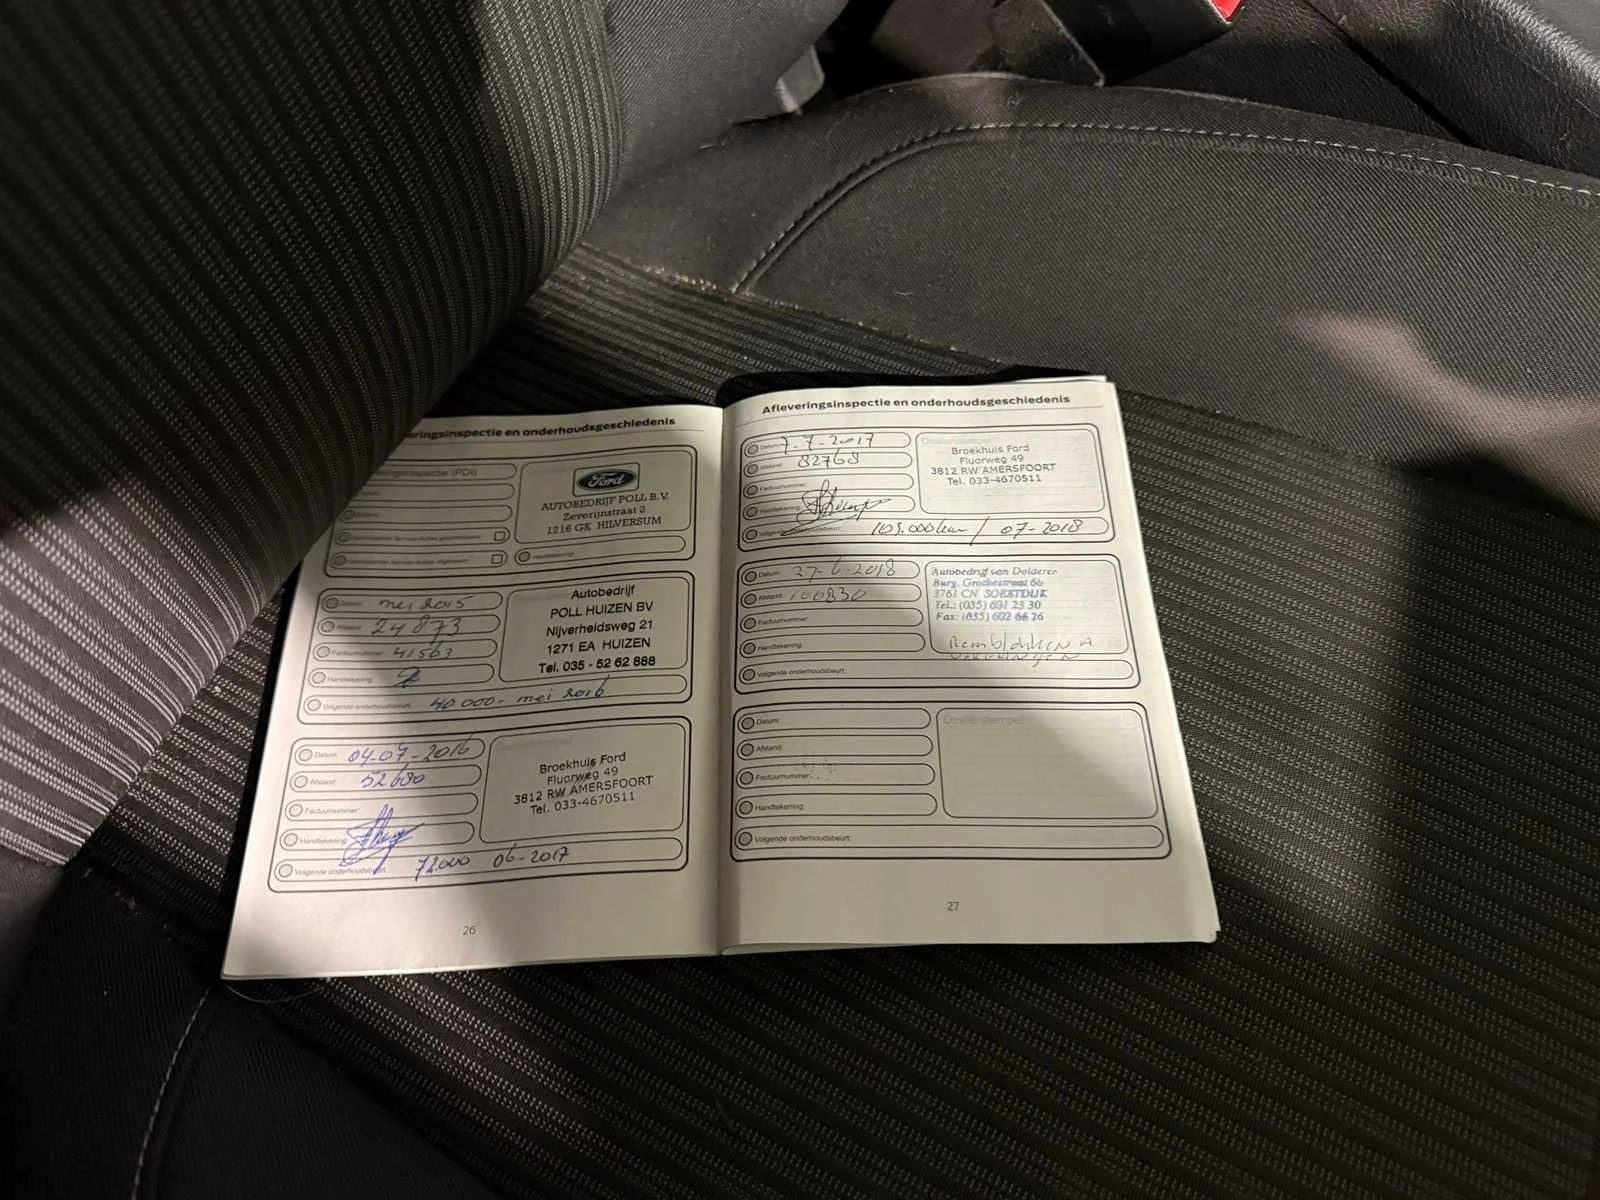 eringsinspectie en onderhoudsgeschiedenis
ringsinspectie (PDI)
Ford
AUTOBEDRIJF POLL B.V.
Zeverijnstraat 2
1216 GK HILVERSUM
Handtekening:
Datum: mei 2015
Afstand: 24873
Factuurnummer: 41563
Handtekening:
Volgende onderhoudsbeurt: 40.000 - mei 2016
Autobedrijf
POLL HUIZEN BV
Nijverheidsweg 21
1271 EA HUIZEN
Tel. 035 - 52 62 888
Datum: 04-07-2016
Afstand: 52680
Factuurnummer:
Handtekening:
Volgende onderhoudsbeurt: 72.000 06-2017
Broekhuis Ford
Fluorweg 49
3812 RW AMERSFOORT
Tel. 033-4670511
26
Afleveringsinspectie en onderhoudsgeschiedenis
Datum: 7-7-2017
Afstand: 82768
Factuurnummer:
Handtekening:
Volgende onderhoudsbeurt: 105.000 km / 07-2018
Dealerstempel
Broekhuis Ford
Fluorweg 49
3812 RW AMERSFOORT
Tel. 033-4670511
Datum: 27-6-2018
Afstand: 100830
Factuurnummer:
Handtekening:
Volgende onderhoudsbeurt:
Autobedrijf van Dolderen
Burg. Grothestraat 6b
3761 CN SOESTDIJK
Tel.: (035) 601 23 30
Fax: (035) 602 66 26
Datum:
Afstand:
Factuurnummer:
Handtekening:
Volgende onderhoudsbeurt:
Dealerstempel
27